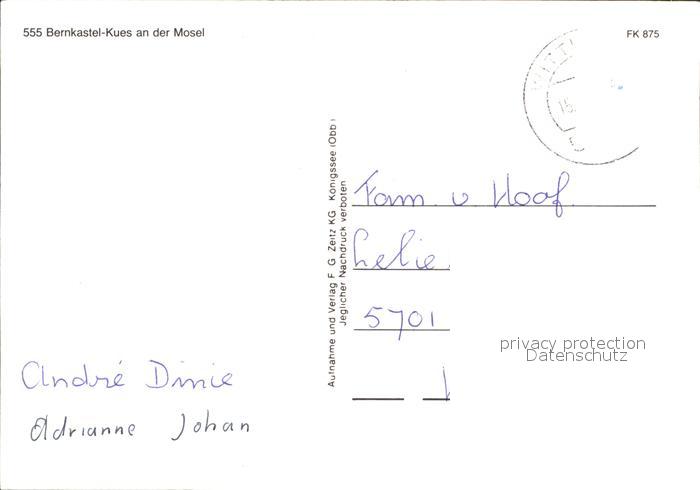 555 Bernkastel-Kues an der Mosel
FK 875
WITTL
15.
Aufnahme und Verlag F G Zeitz KG Königssee (Obb)
Jeglicher Nachdruck verboten
Fam v Hoof
5701
privacy protection
Datenschutz
André Dinie
Adrianne Johan